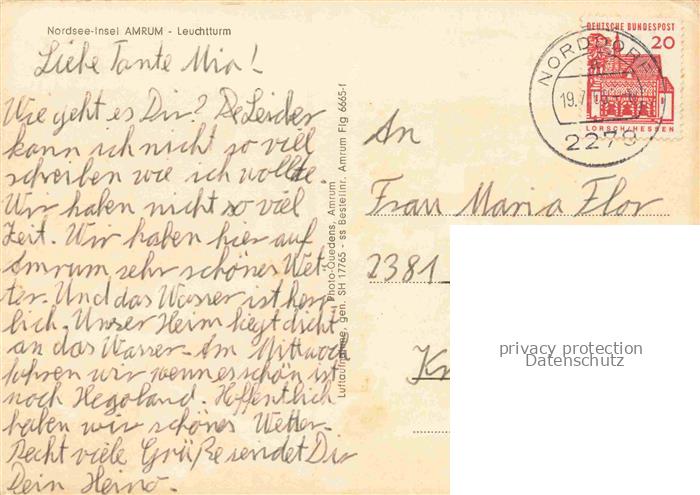 Nordsee-Insel AMRUM - Leuchtturm
Liebe Tante Mia!
Wie geht es Dir? DeLeider
kann ich nicht so viell
schreiben wie ich wollte.
Wir haben nicht so viel
Zeit. Wir haben hier auf
Amrum sehr schönes Wet-
ter. Und das Wasser ist herr
lich. Unser Heim liegt dicht
an das Wasser. Am Mittwoch
fahren wir wenn es schön ist
noch Hegoland. Hoffentlich
haben wir schönes Wetter.
Recht viele Grüße sendet Dir
Dein Heino.
Luftaufnahme, gen. SH 17765 - ss Bestellnr. Amrum Flg 6665-f
Photo-Quedens, Amrum
DEUTSCHE BUNDESPOST
20
LORSCH/HESSEN
NORDDORF
19.7.
2278
An
Frau Maria Flor
2381
privacy protection
Datenschutz